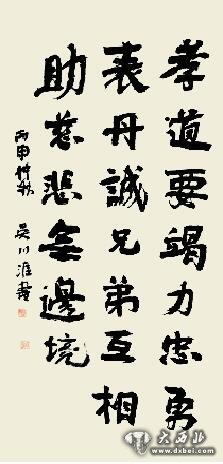 孝道要竭力忠勇
表丹誠兄弟互相
助慈悲無邊境
丙申仲秋
吴川淮書
大西北
www.dxbei.com